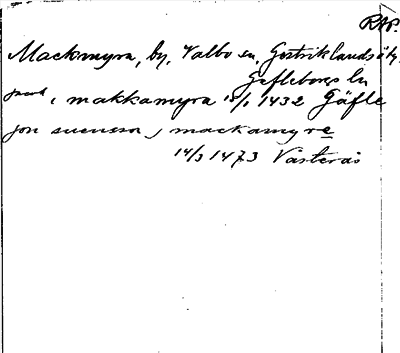 RAP.
Mackmyra, by, Valbo sn, Gestriklands
Gefleborgs ln
makkamyra 18/1 1432 Gäfle
jon svensson, mackamyre
14/3 1473 Västerås